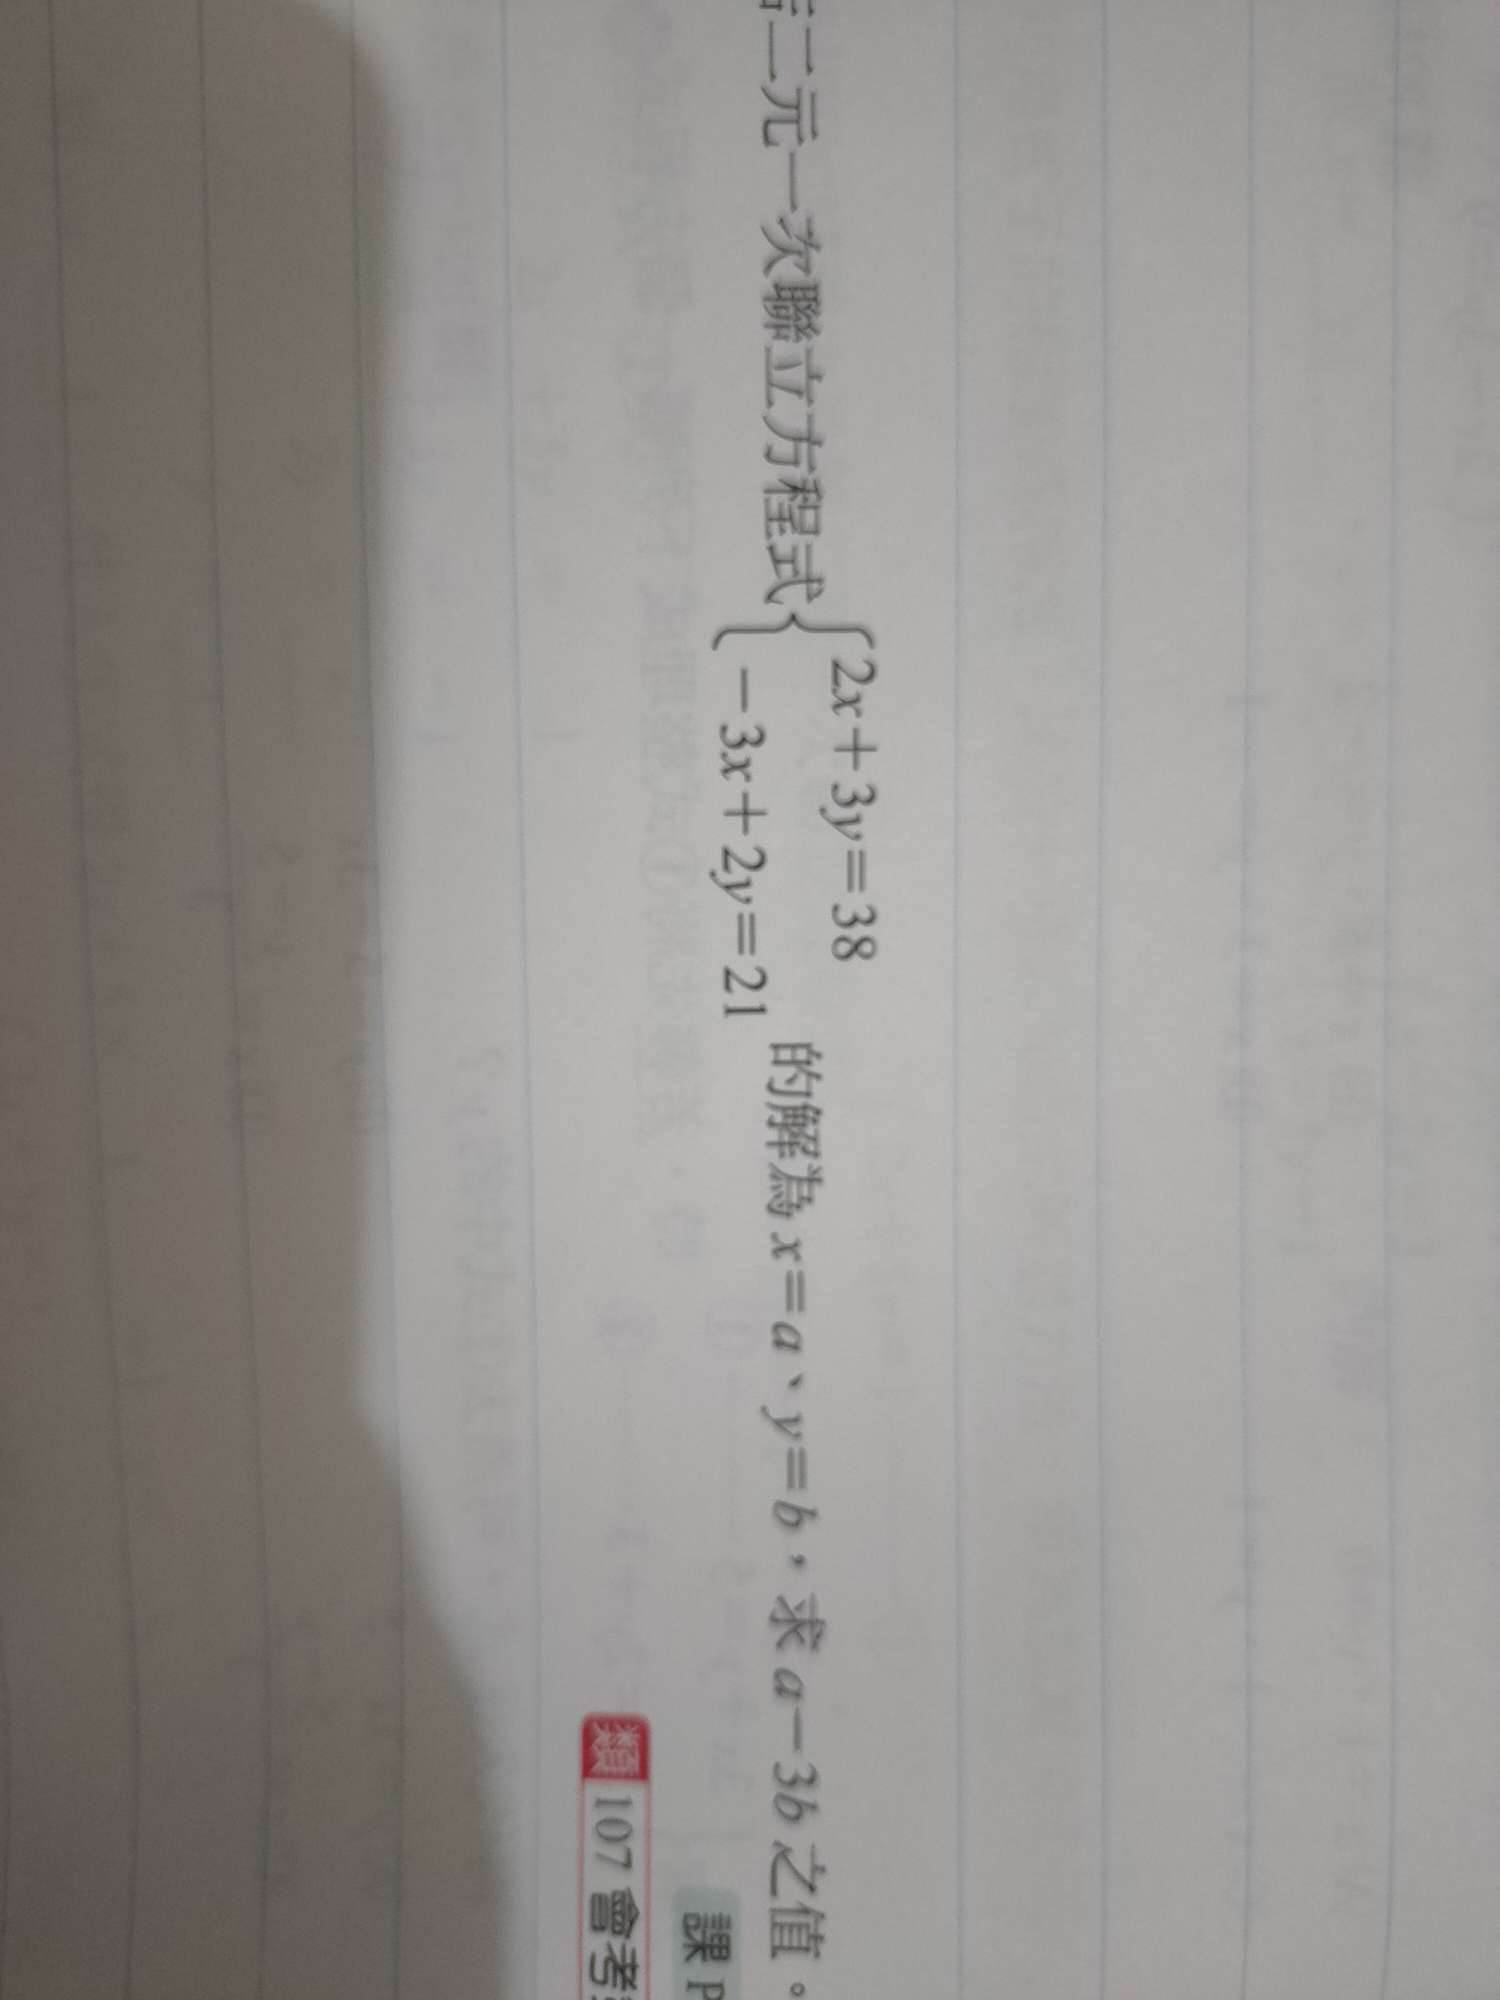 若二元一次聯立方程式{2x+3y=38
-3x+2y=21 的解為 x=a、y=b，求 a-3b 之值。
課 P
類 107 會考